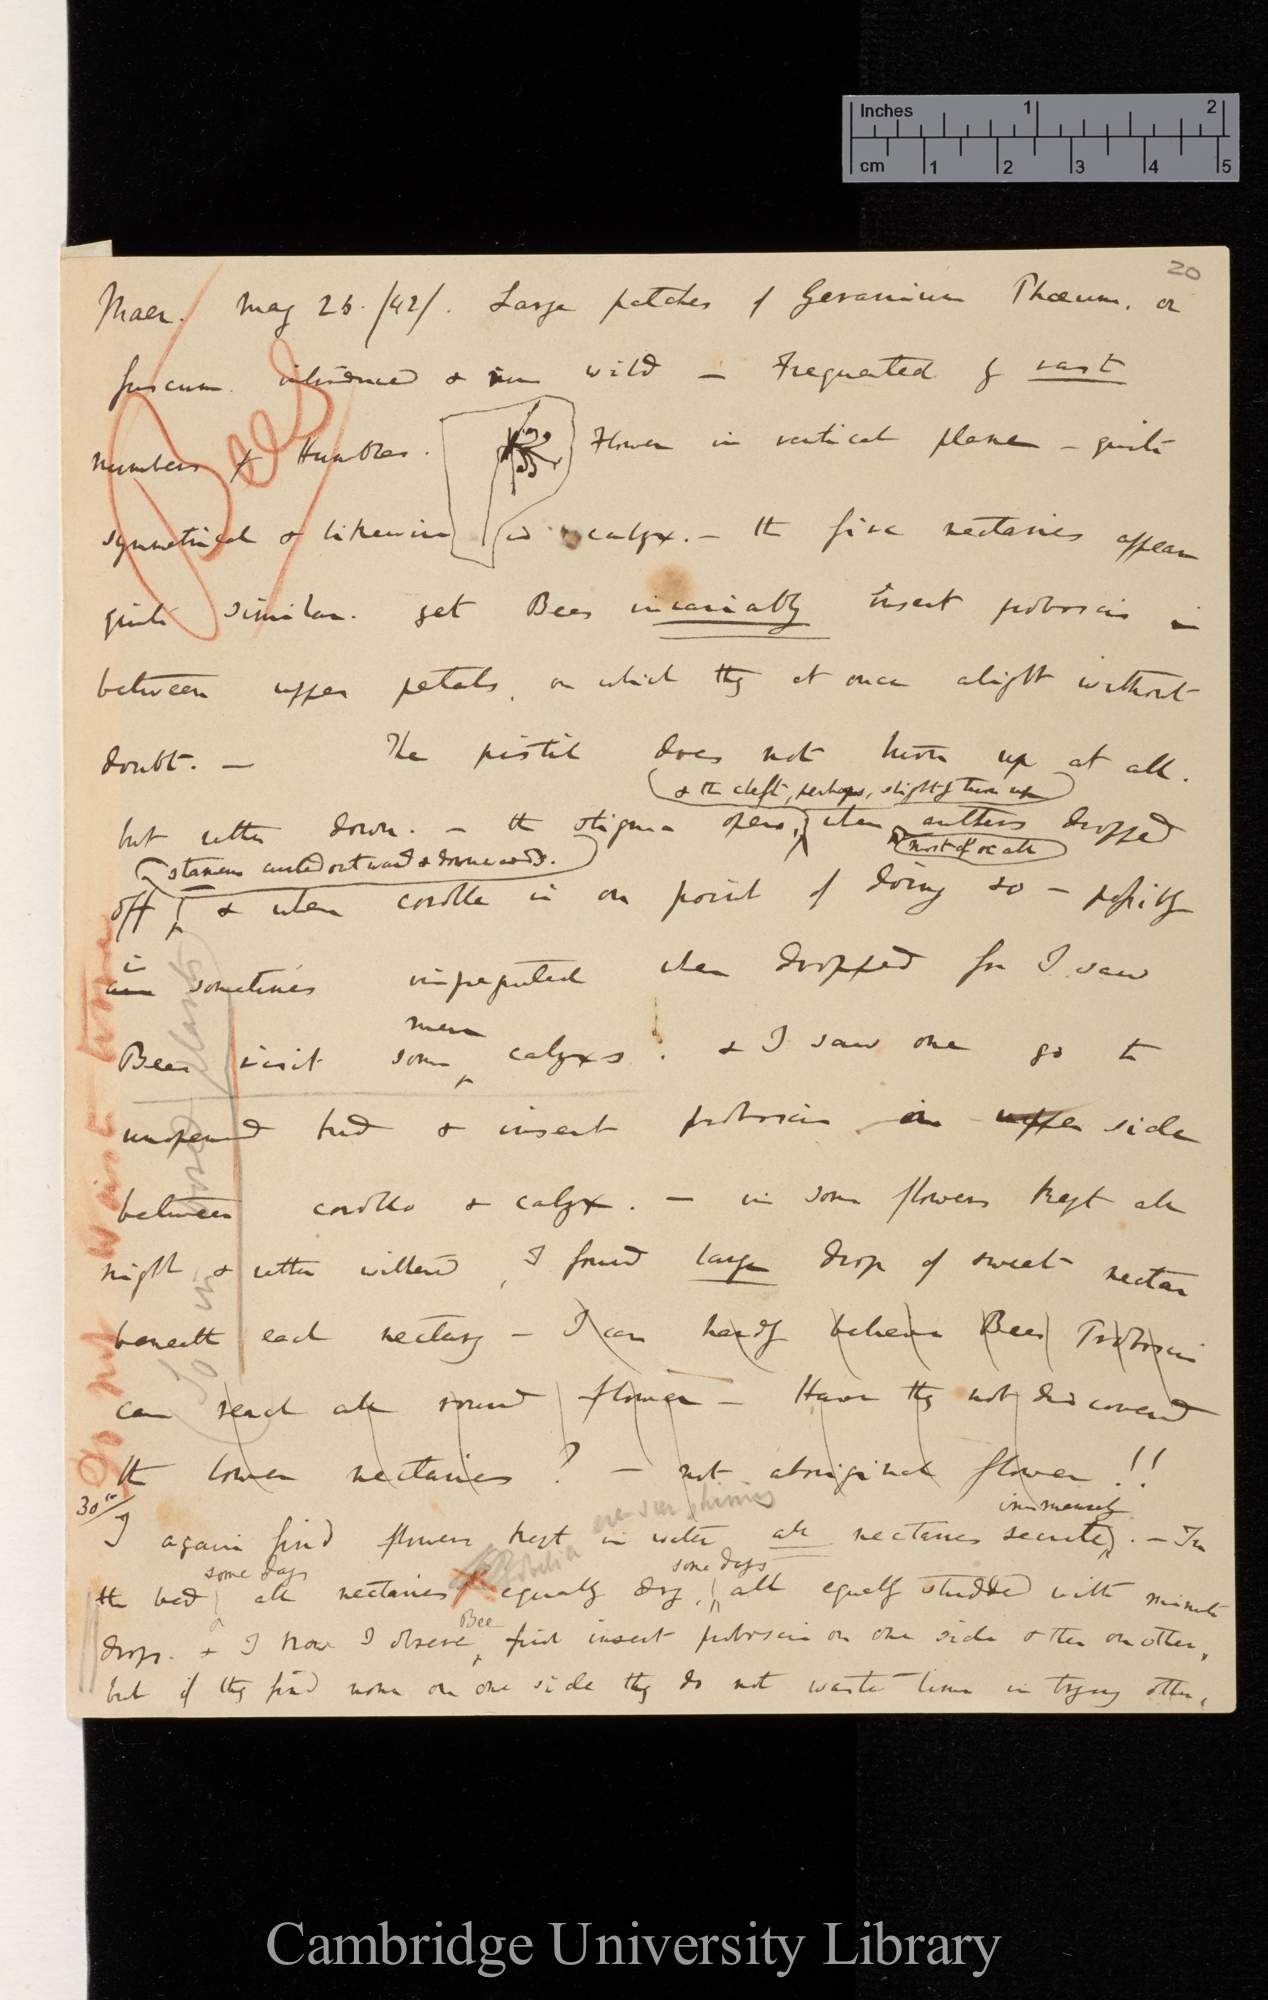 20
Maer. May 26. /42/. Large patches of Geranium Phœum. or
fuscum. introduced & run wild — Frequented by vast
numbers of Humbles. Flower in vertical plane — quite
symmetrical & likewise is calyx. — the five nectaries appear
quite similar. yet Bees invariably insert proboscis in
between upper petals, on which they at once alight without
doubt. — The pistil does not turn up at all.
& the cleft, perhaps, slightly turn up
but rather down. — the stigma opens, when anthers dropped
most of or all
stamens curled outward & downwards.
off, & when corolla is on point of doing so —
is sometimes impregnated when dropped for I saw
mere
Bees visit some calyxs. & I saw one go to
unopened bud & insert proboscis on upper side
between corolla & calyx. — in some flowers kept all
night & rather withered, I found large drop of sweet nectar
beneath each nectary — I can hardly believe Bees Proboscis
can reach all round flower — Have they not discovered
the lower nectaries? — not aboriginal flower!!
30th/
immensely
I again find flowers kept in water all nectaries secrete. — In
some days some days
the bed all nectaries equally dry, all equally studded with minute
Bee
drops. & I now I observe, first insert proboscis on one side & then on other,
but if they find none on one side they do not waste time in trying other,
Bees
do not waste time
Lobelia
Inches 1 2
cm 1 2 3 4 5
Cambridge University Library